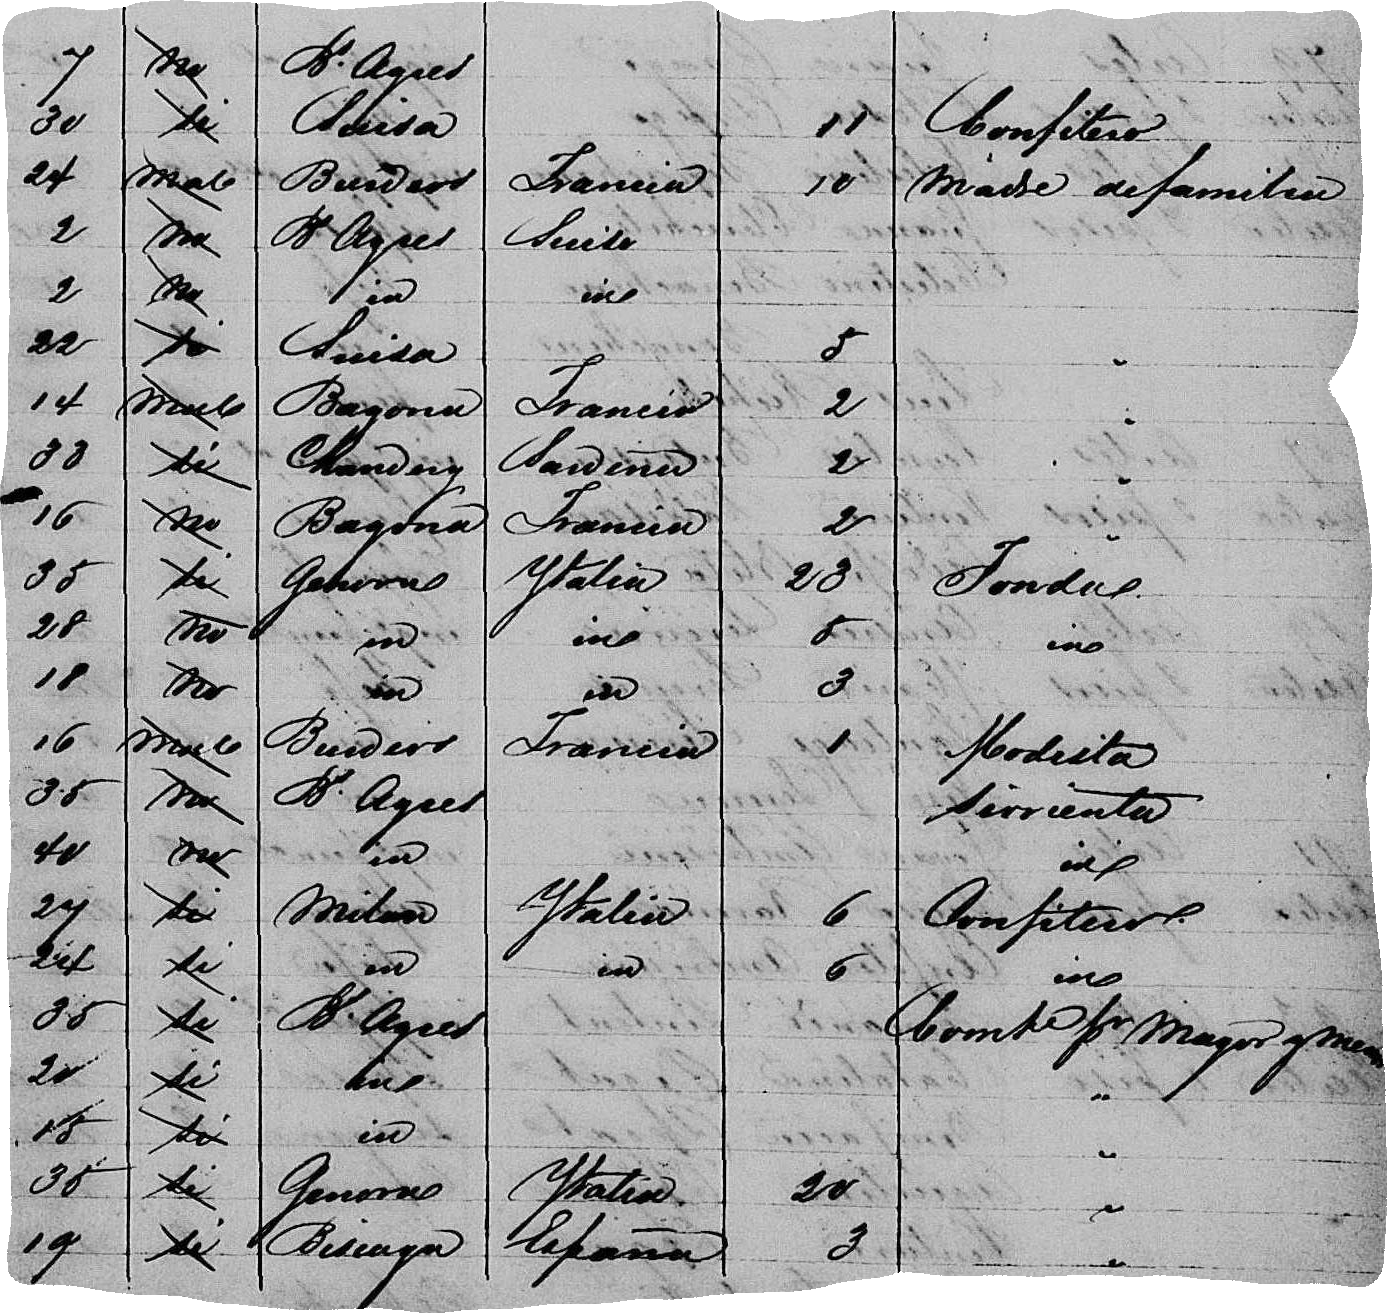 7 no Bs. Ayres
30 si Suisa 11 Confitero
24 Male Burdeos Francia 10 Madre de familia
2 no Bs Ayres Suiso
2 no id id
22 si Suisa 5 "
14 Male Bayona Francia 2 "
33 si Chambery Sardeña 2 "
16 no Bayona Francia 2 "
35 si Genova Ytalia 23 Fonda
28 no id id 5 id
18 no id id 3
16 Male Burdeos Francia 1 Modista
35 no Bs. Ayres Sirvienta
40 no id id
27 si Milan Ytalia 6 Confitero
24 si id id 6 id
35 si Bs. Ayres Comte pr Mayor y Men
20 si id "
15 si id "
35 si Genova Ytalia 20 "
19 si Biscaya España 3 "